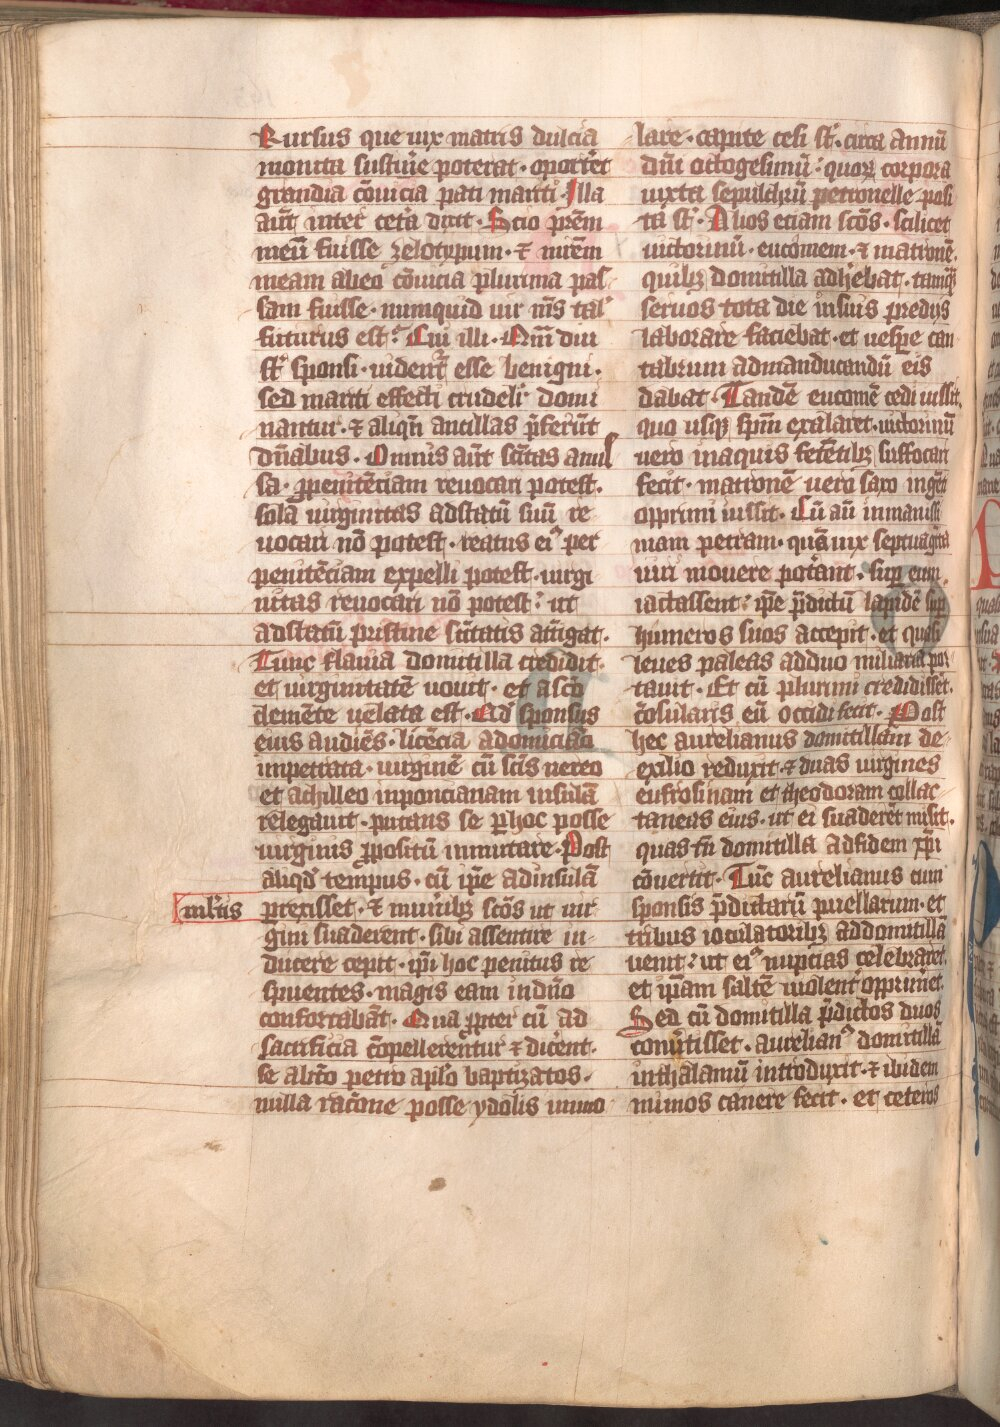 Rursus que uix matris dulcia
monita sustin̄e poterat · oportēt
grandia cōuicia pati mariti · Illa
aūt inter cet̄a dixit · Scio prēm
meū fuisse zelotypum · ⁊ mrēm
meam abeo cōuicia plurima pas
sam fuisse · numquid uir m̄s tal᷒
futurus est · Cui illi · Qm̄ diu
st̄ sponsi · uident᷑ esse benigni ·
sed mariti effecti crudeli᷒ domi
nantur · ⁊ aliqn̄ ancillas p̄ferūt
dn̄abus · Omnis aūt sc̄itas amis
sa · ꝑpenitēciam reuocari potest ·
sola uirginitas adstatū suū re
uocari nō potest · reatus ei᷒ per
penitēciam expelli potest · uirgi
nitas reuocari nō potest · ut
adstatū pristine sc̄itatis at̄igat ·
Tunc flauia domitilla credidit ·
et uirginitatē uouit · et a sc̄o
clemēte uelata est · Qd̄ sponsus
eius audiēs · licēcia a domiciāo
inpetrata · uirginē cū sc̄is nereo
et achilleo inponcianam insulā
relegauit · putans se ꝑ hoc posse
uirginis ꝓpositū inmutare · Post
aliqd̄ tempus · cū ip̄e adinsulā
mltis
prexisset · ⁊ munībꝫ sc̄os ut uir
gini suaderent · sibi assentire in-
ducere cepit · ip̄i hoc penitus re
spuentes · magis eam in dn̄o
confortabāt · Qua ꝓpter cū ad
sacrificia cōpellerentur ⁊ dicēt ·
se abt̄o petro aplo baptizatos ·
nulla rac̄one posse ydolis immo
lare · capite cesi st̄ · circa annū
dn̄i octogesimū · quorꝝ corpora
iuxta sepulchrū petronelle posi
ta st̄ · Alios eciam sc̄os · scilicet
uictorinū · eucomem · ⁊ maronē ·
quibꝫ domitilla adhēbat · tamqꝫ
seruos tota die insuis predijs
laborare faciebat · et uesꝑe can
tabrum admanducandū eis
dabat · Tandē eucomē cedi iussit
quo usqꝫ spm̄ exalaret · uictorinū
uero inaquis fetētibꝫ suffocari
fecit · maronē uero saxo ingēti
opprimi iussit · Cū aū inmanissi
mam petram · quā uix septuagīta
uiri mouere potāt · suꝑ eum
iactassent · ip̄e p̄dictū lapidē suꝑ
humeros suos accepit · et quasi
leues paleas adduo miliaria por
tauit · Et cū plurimi credidissēt ·
cōsularis eū occidi fecit · Post
hec aurelianus domitillam de
exilio reduxit · ⁊ duas uirgines
eufrosinam et theodoram collac
taneas eius · ut ei suaderēt misit ·
quas tn̄ domitilla adfidem xp̄i
cōuertit · Tūc aurelianus cum
sponsis p̄dictarū puellarum · et
tribus ioculatoribꝫ ad domitillā
uenit · ut ei᷒ nupcias celebraret
et ip̄am saltē uiolent᷑ opprimet ·
Sed cū domitilla p̄dictos duos
conūtisset · aurelian᷒ domitillā
inthalamū introduxit · ⁊ ibidem
mimos canere fecit · et ceteros